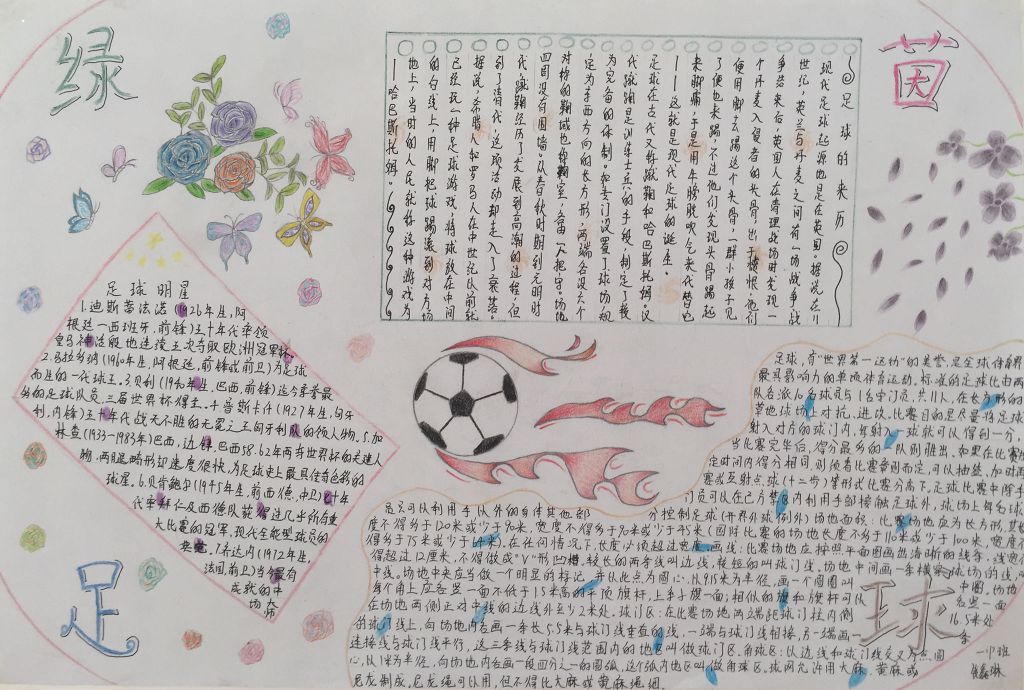 绿
茵
足球的来历
现代足球起源地是在英国。据说在11
世纪,英兰与丹麦之间有一场战争,战
争结束后,英国人在清理战场时发现一
个丹麦入侵者的头骨,出于愤恨,他们
便用脚去踢这个头骨,一群小孩子见
了便也来踢,不过他们发现头骨踢起
来脚痛,于是用牛膀胱吹气来代替它
——这就是现代足球的诞生。
足球在古代又称蹴鞠和哈巴斯托姆。汉
代蹴鞠是训练士兵的手段,制定了较
为完备的体制。如专门设置了球场,规
定为东西方向的长方形,两端各设六个
对称的鞠域也称鞠室,各由一人把守。场地
四周没有围墙。从春秋时期到元明时
代,蹴鞠经历了发展到高潮的过程,但
到了清代,这项活动却走入了衰落。
据说,希腊人和罗马人在中世纪以前就
已经玩一种足球游戏,将球放在中间
的白线上,用脚把球踢滚到对方场
地上,当时的人民就称这种游戏为
——哈巴斯托姆。
足球明星
1.迪斯蒂法诺(1926年生,阿
根廷—西班牙,前锋)五十年代率领
皇马神话般地连续五次夺取欧洲冠军杯。
2.马拉多纳(1960年生,阿根廷,前锋或前卫)为足球
而生的一代球王。3.贝利(1940年生,巴西,前锋)迄今享誉最
多的足球队员,三届世界杯得主。4.普斯卡什(1927年生,匈牙
利,内锋)五十年代战无不胜的无冕之王匈牙利队的领人物。5.加
林查(1933-1983年)巴西,边锋,巴西58.62年两夺世界杯的关键人
物,两腿畸形却速度很快,为足球史上最具传奇色彩的
球星。6.贝肯鲍尔(1945年生,前西德,中卫)七十年
代率拜仁及西德队获得过几乎所有重
大比赛的冠军,现代全能型球员的
典范。7.齐达内(1972年生,
法国,前卫)当今最有
成就的中
场大师
足球,有"世界第一运动"的美誉,是全球体育界
最具影响力的单项体育运动。标准的足球比由两
队各派10名球员与1名守门员,共11人,在长方形的
草地球场上对抗、进攻。比赛目的是尽量将足球
射入对方的球门内,每射入一球就可以得到一分,
当比赛完毕后,得分最多的一队则胜出。如果在比赛规
定时间内得分相同,则须看比赛章则而定,可以抽签、加时再
赛或互射点球(十二步)等形式比赛分高下。足球比赛中除守
门员可以在己方禁区内利用手部接触足球外,球场上每名球
员只可以利用手以外的身体其他部分控制足球(开界外球例外)场地面积:比赛场地应为长方形,其长
度不得多于120米或少于90米,宽度不得多于90米或少于45米(国际比赛的场地长度不多于110米或少于100米,宽度不
得多于75米或少于64米)。在任何情况下,长度必须超过宽度。画线:比赛场地应按照平面图画出清晰的线条,线宽不
得超过12厘米,不得做成"V"形凹槽。较长的两条线叫边线,较短的叫球门线。场地中间画一条横穿球场的线,叫
中线。场地中央应当做一个明显的标记,并以此点为圆心,以9.15米为半径,画一个圆圈叫中圈。场地
每个角上应各竖一面不低于1.5米高的平顶旗杆,上系小旗一面;相似的旗和旗杆可以各竖一面
在场地两侧正对中线的边线外至少2米处。球门区:在比赛场地两端距球门柱内侧5.5米处
的球门线上,向场地内各画一条长5.5米与球门线垂直的线,一端与球门线相接,另一端画一条
连接线与球门线平行,这三条线与球门线范围内的地区叫做球门区。角球区:以边线和球门线交叉为点圆
心,以1米为半径,向场地内各画一段四分之一的圆弧,这个弧内地区叫做角球区。球网允许用大麻、黄麻或
尼龙制成。尼龙绳可以用,但不得比大麻或黄麻绳细。
足
球